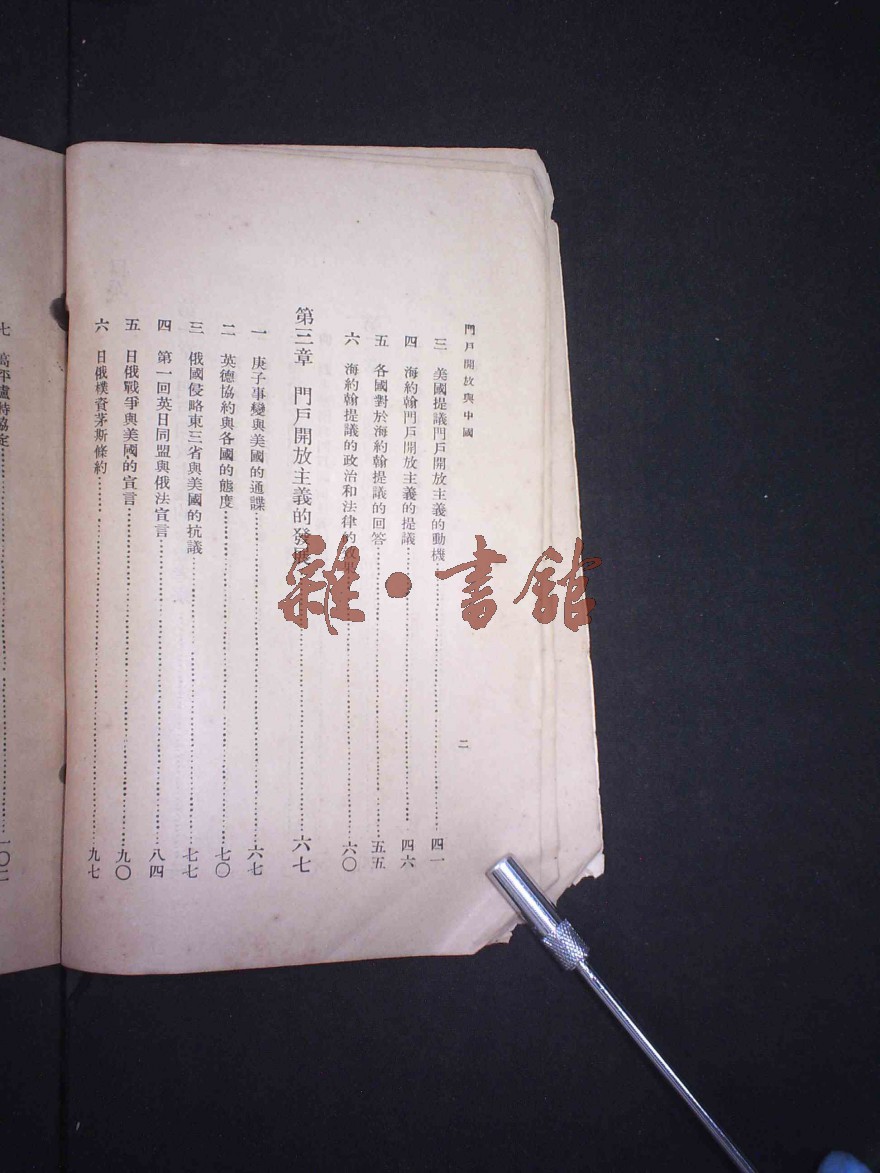 門戶開放與中國
二
三 美國提議門戶開放主義的動機 四一
四 海約翰門戶開放主義的提議 四六
五 各國對於海約翰提議的回答 五五
六 海約翰提議的政治和法律的效果 六〇
第三章 門戶開放主義的發展 六七
一 庚子事變與美國的通諜 六七
二 英德協約與各國的態度 七〇
三 俄國侵略東三省與美國的抗議 七七
四 第一回英日同盟與俄法宣言 八四
五 日俄戰爭與美國的宣言 九〇
六 日俄樸資茅斯條約 九七
七 高平盧特協定 一〇二
雜·書館